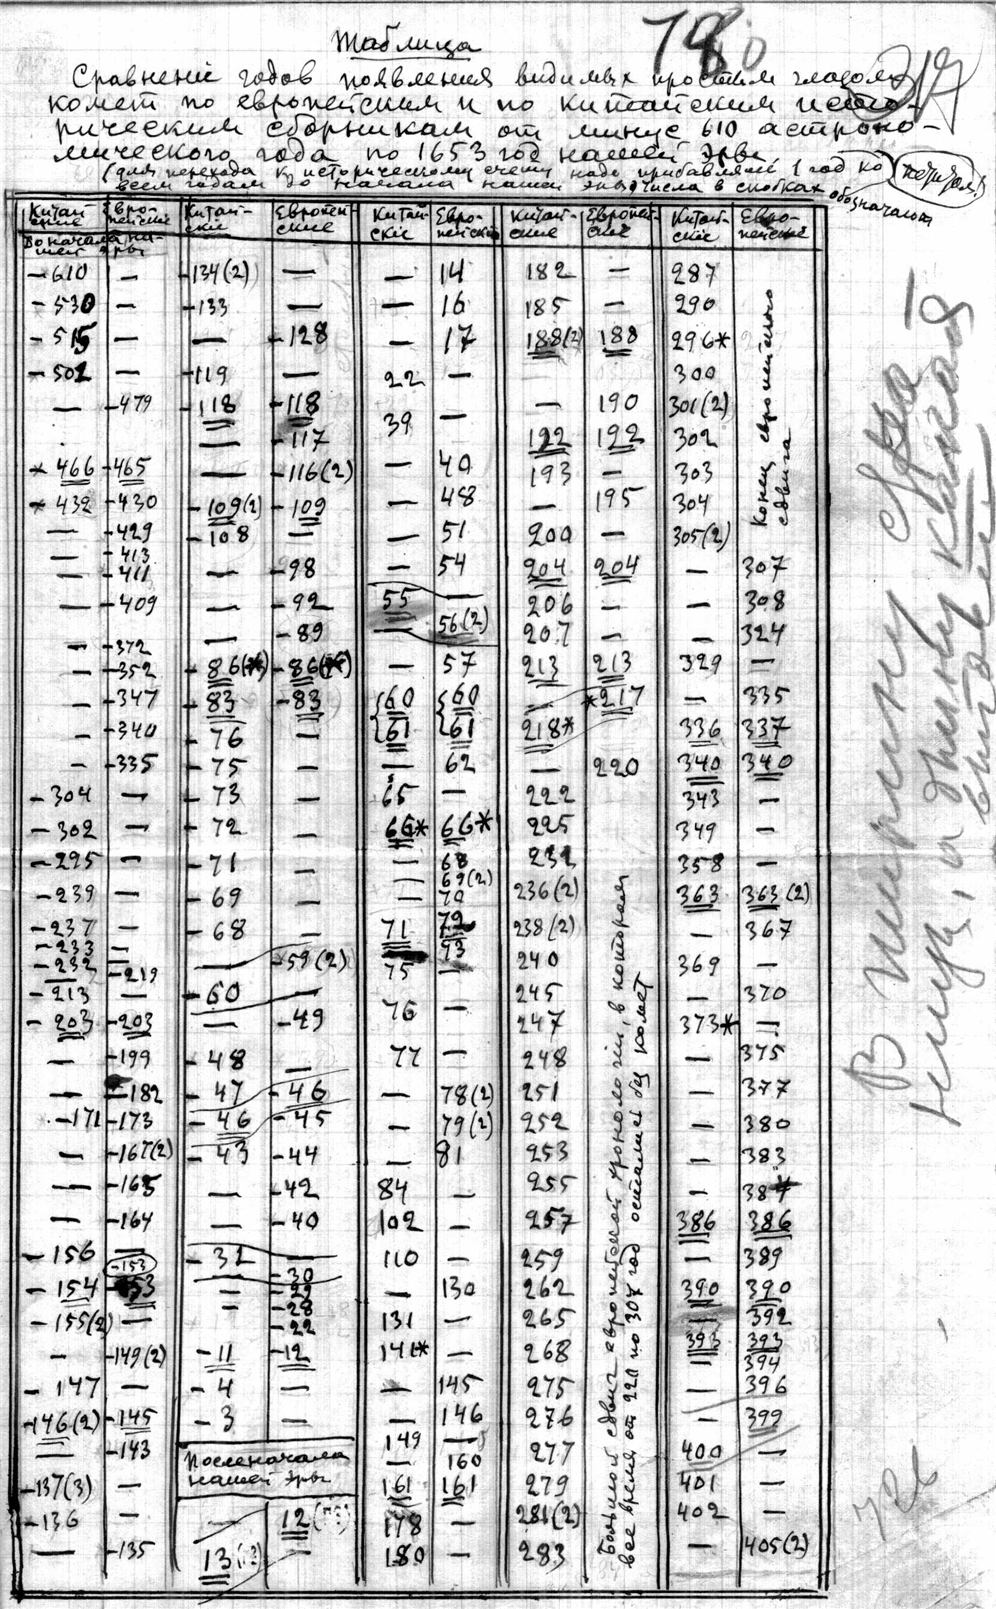 Таблица
Сравненіе годов появления видимых простым глазом
комет по европейским и по китайским исто-
рическим сборникам от минус 610 астроно-
мического года по 1653 год нашей эры.
(для перехода к историческому счету надо прибавлять 1 год ко
всем годам до начала нашей эры) числа в скобках
обозначают
Китай-ские Европейские Китай-ские Европей-ские Китай-скіе Евро-пейскіе Китай-ские Европей-ские Китай-скіе Евро-пейские
До начала на-шей эры
-610 — -134(2) — — 14 182 — 287
-530 — -133 — — 16 185 — 290
-515 — — -128 — 17 188(2) 188 296*
-502 — -119 — 22 — 300
— -479 -118 -118 39 — — 190 301(2)
— -117 192 192 302
* 466 -465 — -116(2) — 40 193 — 303
* 432 -430 -109(2) -109 — 48 — 195 304
— -429 -108 — — 51 200 — 305(2)
— -413
— -411 — -98 — 54 204 204 — 307
— -409 — -92 55 — 206 — — 308
— -89 — 56(2) 207 — — 324
— -372
— -352 -86(*) -86(*) — 57 213 213 329 —
— -347 -83 -83 60 60 — *217 — 335
— -340 -76 — 61 61 218* 336 337
— -335 -75 — — 62 — 220 340 340
-304 — -73 — 65 — 222 343 —
-302 — -72 — 66* 66* 225 349 —
-295 — -71 — — 68 232 358 —
— 69(2)
-239 — -69 — — 70 236(2) 363 363(2)
-237 — -68 — 71 72 238(2) — 367
-233 — 73
-232 -219 — -59(2) 75 — 240 369 —
-213 — -60 — 76 — 245 — 370
-203 -203 — -49 247 373* —
— -199 -48 — 77 — 248 — 375
— -182 -47 -46 — 78(2) 251 — 377
-171 -173 -46 -45 — 79(2) 252 — 380
— -167(2) -43 -44 — 81 253 — 383
— -165 — -42 84 — 255 —
— -164 — -40 102 — 257 386 386
-156 — -31 — 110 — 259 — 389
-153
-154 — -30 — 130 262 390 390
— -28
-155(2) — -22 131 — 265 — 392
— -149(2) -11 -12 141* — 268 393 393
— 394
-147 — -4 — — 145 275 — 396
-146(2) -145 -3 — — 146 276 — 399
— -143 149 — 277 400 —
После начала
нашей эры
— 160
-137(3) — 161 161 279 401 —
-136 — — 12 178 — 281(2) 402 —
— -135 13 — 180 — 283 — 405(2)
Большой сдвиг европейской хронологіи, в котором
все время от 220 по 307 год остались без комет
Конец европейского
сдвига